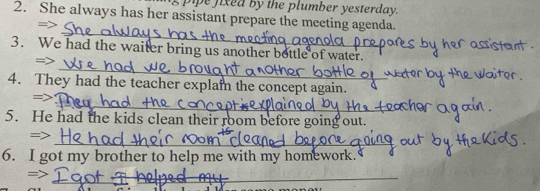 pipe fixed by the plumber yesterday.
2. She always has her assistant prepare the meeting agenda.
=> She always has the meeting agenda prepares by her assistant.
3. We had the waiter bring us another bottle of water.
=> We had we brought another bottle of water by the waitor.
4. They had the teacher explain the concept again.
=> They had the concept explained by the teacher again.
5. He had the kids clean their room before going out.
=> He had their room cleaned before going out by the kids.
6. I got my brother to help me with my homework.
=> I got I helped my